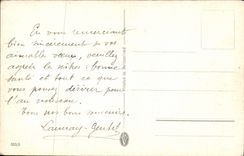 En vous remerciant
bien sincèrement de vos
aimable vœux, veuillez
agréer les nôtres : bonne
santé et tout ce que
vous pouvez désirer pour
l'an nouveau.
Tous nos bons